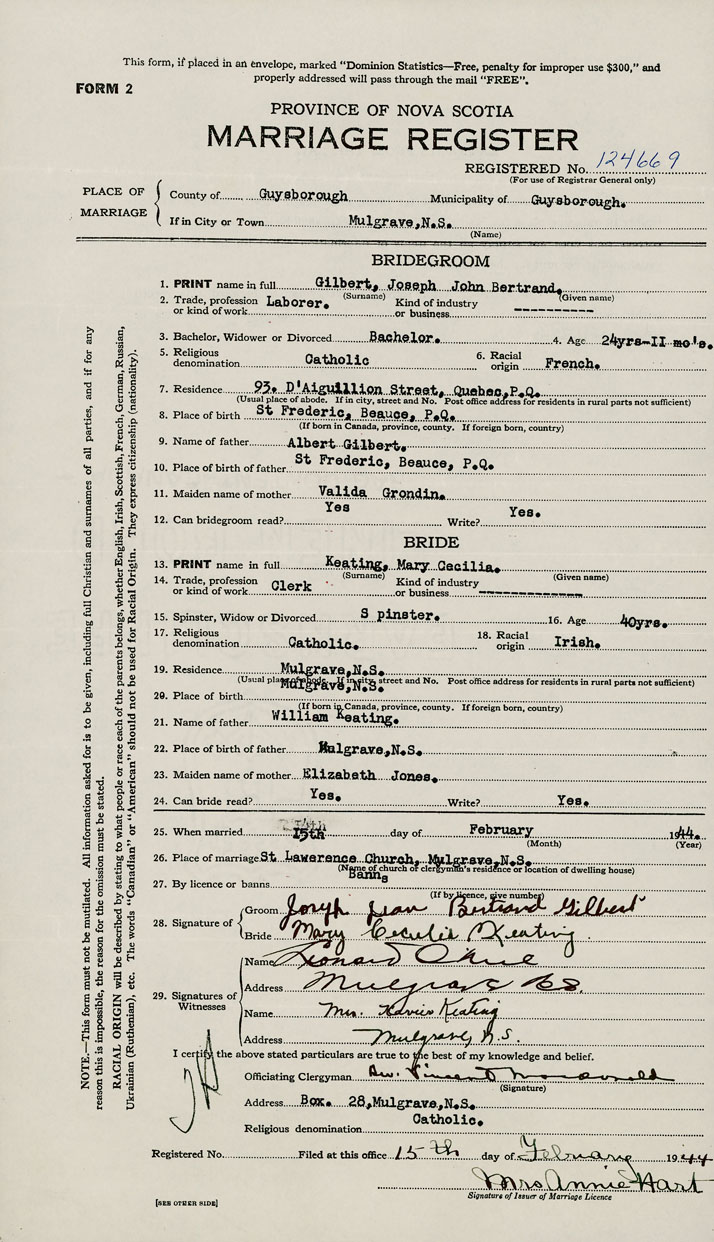 This form, if placed in an envelope, marked "Dominion Statistics—Free, penalty for improper use $300," and
properly addressed will pass through the mail "FREE".
FORM 2
PROVINCE OF NOVA SCOTIA
MARRIAGE REGISTER
REGISTERED No. 124669
(For use of Registrar General only)
PLACE OF MARRIAGE
County of Guysborough Municipality of Guysborough.
If in City or Town Mulgrave,N.S.
(Name)
BRIDEGROOM
1. PRINT name in full Gilbert, Joseph John Bertrand.
(Surname) (Given name)
2. Trade, profession or kind of work Laborer. Kind of industry or business ----------
3. Bachelor, Widower or Divorced Bachelor. 4. Age 24yrs-II mo's.
5. Religious denomination Catholic 6. Racial origin French.
7. Residence 93. D'Aiguillion Street, Quebec,P.Q.
(Usual place of abode. If in city, street and No. Post office address for residents in rural parts not sufficient)
8. Place of birth St Frederic, Beauce, P.Q.
(If born in Canada, province, county. If foreign born, country)
9. Name of father Albert Gilbert.
10. Place of birth of father St Frederic, Beauce, P.Q.
11. Maiden name of mother Valida Grondin.
12. Can bridegroom read? Yes Write? Yes.
BRIDE
13. PRINT name in full Keating, Mary Cecilia.
(Surname) (Given name)
14. Trade, profession or kind of work Clerk Kind of industry or business -------------
15. Spinster, Widow or Divorced S pinster. 16. Age 40yrs.
17. Religious denomination Catholic. 18. Racial origin Irish.
19. Residence Mulgrave,N.S.
(Usual place of abode. If in city, street and No. Post office address for residents in rural parts not sufficient)
20. Place of birth Mulgrave,N.S.
(If born in Canada, province, county. If foreign born, country)
21. Name of father William Keating.
22. Place of birth of father Mulgrave,N.S.
23. Maiden name of mother Elizabeth Jones.
24. Can bride read? Yes. Write? Yes.
25. When married 15th day of February 1944.
(Month) (Year)
26. Place of marriage St Lawerence Church, Mulgrave,N.S.
(Name of church or clergyman's residence or location of dwelling house)
27. By licence or banns Banns
(If by licence, give number)
28. Signature of
Groom Joseph Jean Bertrand Gilbert
Bride Mary Cecelia Keating
29. Signatures of Witnesses
Name Leonard
Address Mulgrave NS.
Name Mrs. Xavier Keating
Address Mulgrave, N.S.
I certify the above stated particulars are true to the best of my knowledge and belief.
Officiating Clergyman Rev. Vincent Macdonald
(Signature)
Address Box. 28,Mulgrave,N.S.
Religious denomination Catholic.
Registered No. Filed at this office 15th day of February 1944
Mrs Annie Hart
Signature of Issuer of Marriage Licence
[SEE OTHER SIDE]
NOTE.—This form must not be mutilated. All information asked for is to be given, including full Christian and surnames of all parties, and if for any
reason this is impossible, the reason for the omission must be stated.
RACIAL ORIGIN will be described by stating to what people or race each of the parents belongs, whether English, Irish, Scottish, French, German, Russian,
Ukrainian (Ruthenian), etc. The words "Canadian" or "American" should not be used for Racial Origin. They express citizenship (nationality).